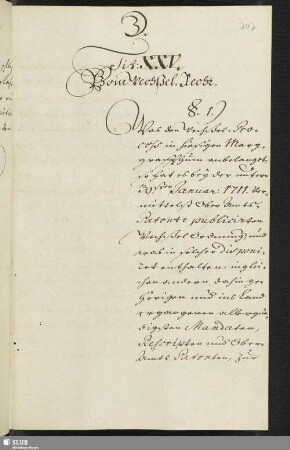 3.
707
Tit: XXV.
Vom Wechsel-Recht.
§. 1.
Was den Wechsel-Pro-
cess in hiesigen Marg-
graffthum anbelanget,
so hat es bey der unterm
30sten Januar: 1711. ver-
mittelst Ober Amts-
Patente publicirten
Wechsel Ordnung und
was in solcher disponi-
ret enthalten, inglei-
chen andern dahin ge-
hörigen und ins Land
ergangenen allergnä-
digsten Mandaten,
Rescripten und Ober-
Amts Patenten, zur
SLUB